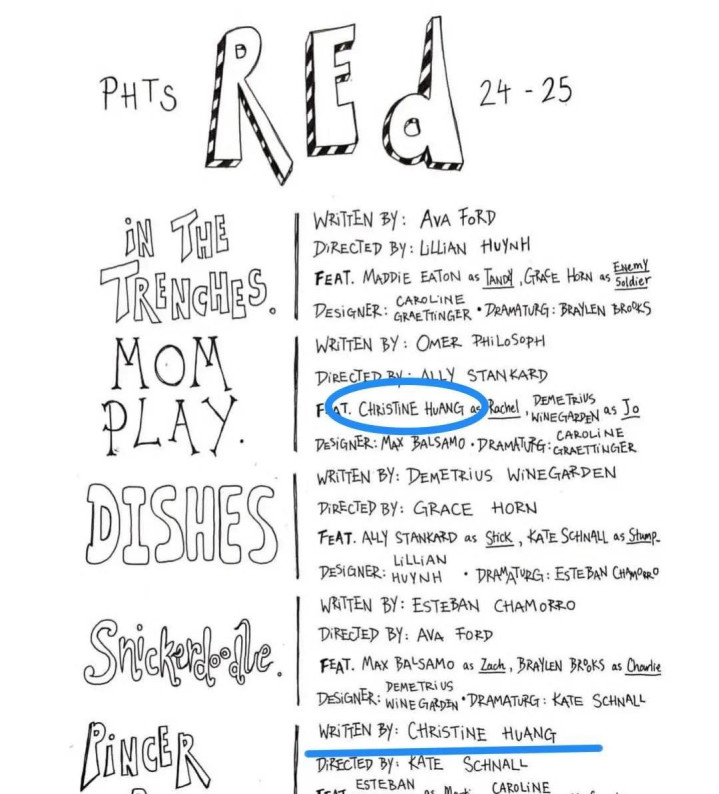 PHTS REd 24 - 25
iN THE
TRENCHES.
WRiTTEN BY: AVA FORD
DiRECTED BY: LiLLiAN HUYNH
FEAT. MADDiE EATON as TANDY, GRACE HORN as Enemy Soldier
DESiGNER: CAROLiNE GRAETTiNGER • DRAMATURG: BRAYLEN BROOKS
MOM
PLAY.
WRiTTEN BY: OMER PHiLOSOPH
DiRECTED BY: ALLY STANKARD
FEAT. CHRiSTiNE HUANG as Rachel, DEMETRiUS WiNEGARDEN as Jo
DESiGNER: MAX BALSAMO • DRAMATURG: CAROLiNE GRAETTiNGER
DISHES
WRiTTEN BY: DEMETRiUS WiNEGARDEN
DiRECTED BY: GRACE HORN
FEAT. ALLY STANKARD as Stick, KATE SCHNALL as Stump.
DESiGNER: LiLLiAN HUYNH • DRAMATURG: ESTEBAN CHAMORRO
Snickerdoodle.
WRiTTEN BY: ESTEBAN CHAMORRO
DiRECTED BY: AVA FORD
FEAT. MAX BALSAMO as Zach, BRAYLEN BROOKS as Charlie
DESiGNER: DEMETRiUS WiNEGARDEN • DRAMATURG: KATE SCHNALL
PiNCER
WRiTTEN BY: CHRiSTiNE HUANG
DiRECTED BY: KATE SCHNALL
FEAT. ESTEBAN as CAROLiNE